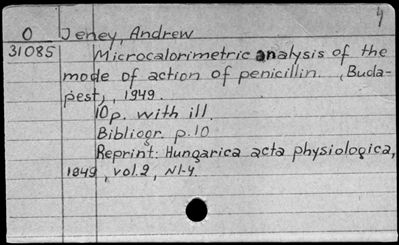 4
O Jeney, Andrew
31085 Microcalorimetric analysis of the
mode of action of penicillin. (Buda-
pest), 1949.
10p. with ill.
Bibliogr. p.10
Reprint: Hungarica acta physiologica,
1949, vol.2, N1-4.